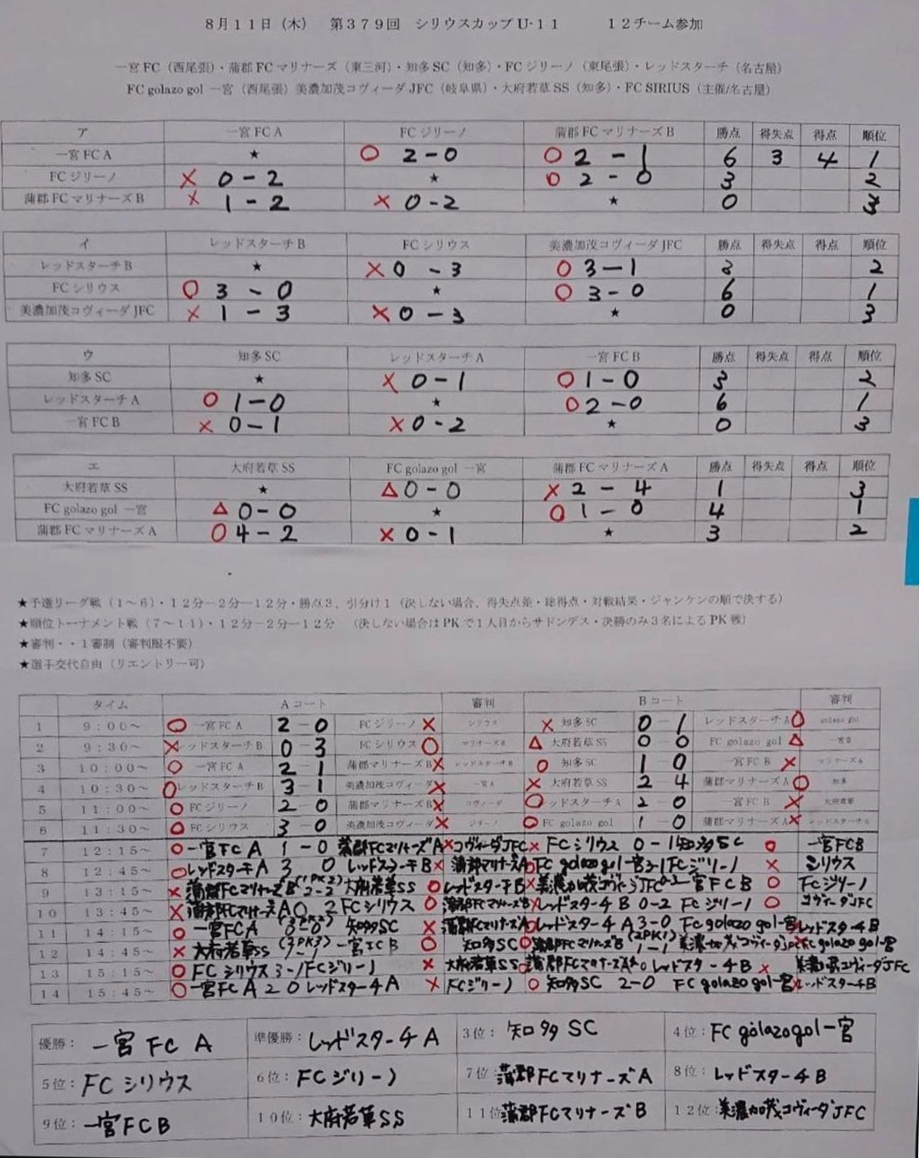 8月11日（木） 第379回 シリウスカップU-11 12チーム参加
一宮FC（西尾張）・蒲郡FCマリナーズ（東三河）・知多SC（知多）・FCジリーノ（東尾張）・レッドスターチ（名古屋）
FC golazo gol 一宮（西尾張）美濃加茂コヴィーダJFC（岐阜県）・大府若草SS（知多）・FC SIRIUS（主催/名古屋）
ア 一宮FC A FCジリーノ 蒲郡FCマリナーズB 勝点 得失点 得点 順位
一宮FC A ★ ○ 2-0 ○ 2-1 6 3 4 1
FCジリーノ × 0-2 ★ ○ 2-0 3 2
蒲郡FCマリナーズB × 1-2 × 0-2 ★ 0 3
イ レッドスターチB FCシリウス 美濃加茂コヴィーダJFC 勝点 得失点 得点 順位
レッドスターチB ★ × 0-3 ○ 3-1 3 2
FCシリウス ○ 3-0 ★ ○ 3-0 6 1
美濃加茂コヴィーダJFC × 1-3 × 0-3 ★ 0 3
ウ 知多SC レッドスターチA 一宮FC B 勝点 得失点 得点 順位
知多SC ★ × 0-1 ○ 1-0 3 2
レッドスターチA ○ 1-0 ★ ○ 2-0 6 1
一宮FC B × 0-1 × 0-2 ★ 0 3
エ 大府若草SS FC golazo gol 一宮 蒲郡FCマリナーズA 勝点 得失点 得点 順位
大府若草SS ★ △ 0-0 × 2-4 1 3
FC golazo gol 一宮 △ 0-0 ★ ○ 1-0 4 1
蒲郡FCマリナーズA ○ 4-2 × 0-1 ★ 3 2
★予選リーグ戦（1～6）・12分―2分―12分・勝点3、引分け1（決しない場合、得失点差・総得点・対戦結果・ジャンケンの順で決する）
★順位トーナメント戦（7～11）・12分―2分―12分 （決しない場合はPKで1人目からサドンデス・決勝のみ3名によるPK戦）
★審判・・1審制（審判服不要）
★選手交代自由（リエントリー可）
タイム Aコート 審判 Bコート 審判
1 9：00～ ○ 一宮FC A 2-0 FCジリーノ × シリウス × 知多SC 0-1 レッドスターチA ○ golazo gol
2 9：30～ × レッドスターチB 0-3 FCシリウス ○ マリナーズB △ 大府若草SS 0 0 FC golazo gol △ 一宮B
3 10：00～ ○ 一宮FC A 2-1 蒲郡マリナーズB × レッドスターチB ○ 知多SC 1 0 一宮FC B × マリナーズA
4 10：30～ ○ レッドスターチB 3-1 美濃加茂コヴィーダ × 一宮A × 大府若草SS 2 4 蒲郡マリナーズA ○ 知多
5 11：00～ ○ FCジリーノ 2-0 蒲郡マリナーズB × コヴィーダ ○ レッドスターチA 2-0 一宮FC B × 大府若草
6 11：30～ ○ FCシリウス 3-0 美濃加茂コヴィーダ × ジリーノ ○ FC golazo gol 1-0 蒲郡マリナーズA × レッドスターチA
7 12：15～ ○ 一宮FC A 1-0 蒲郡FCマリナーズA × コヴィーダJFC × FCシリウス 0-1 知多SC ○ 一宮FCB
8 12：45～ ○ レッドスターチA 3 0 レッドスターチB × 蒲郡マリナーズA ○ FC golazo gol一宮 3-1 FCジリーノ × シリウス
9 13：15～ × 蒲郡FCマリナーズB 2-2 大府若草SS ○ レッドスターチB × 美濃加茂コヴィーダJFC 0-2 一宮FCB ○ FCジリーノ
10 13：45～ × 蒲郡FCマリナーズA 0 2 FCシリウス ○ 蒲郡FCマリナーズB × レッドスターチB 0-2 FCジリーノ ○ コヴィーダJFC
11 14：15～ ○ 一宮FCA 0-0 知多SC × 蒲郡FCマリナーズA ○ レッドスターチA 3-0 FC golazo gol一宮 × レッドスターチB
12 14：45～ × 大府若草SS 1-1 一宮FCB ○ 知多SC ○ 蒲郡FCマリナーズB (2PK1) 1-1 美濃加茂コヴィーダJFC × FC golazo gol一宮
13 15：15～ ○ FCシリウス 3-1 FCジリーノ × 大府若草SS ○ 蒲郡FCマリナーズA 0 レッドスターチB × 美濃加茂コヴィーダJFC
14 15：45～ ○ 一宮FC A 2 0 レッドスターチA × FCジリーノ ○ 知多SC 2-0 FC golazo gol一宮 × レッドスターチB
優勝：一宮FC A 準優勝：レッドスターチA 3位：知多SC 4位：FC golazo gol一宮
5位：FCシリウス 6位：FCジリーノ 7位：蒲郡FCマリナーズA 8位：レッドスターチB
9位：一宮FCB 10位：大府若草SS 11位：蒲郡FCマリナーズB 12位：美濃加茂コヴィーダJFC